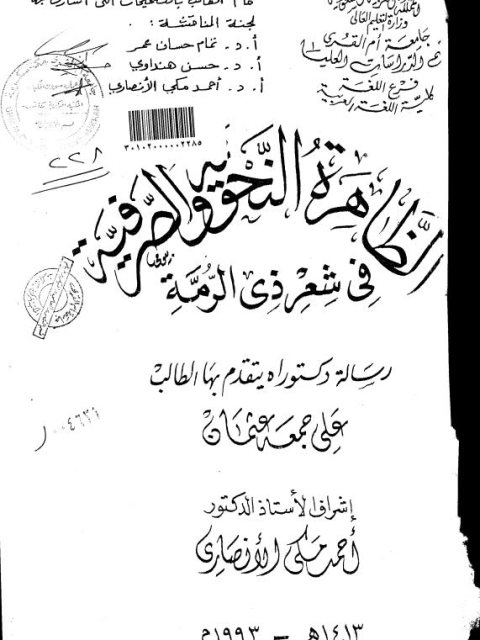 المملكة العربية السعودية
وزارة التعليم العالي
جامعة أم القرى
قسم الدراسات العليا
فرع اللغة
كلية اللغة العربية
قام الطالب بالتصحيحات التي أشارت بها
لجنة المناقشة :
أ. د. تمام حسان عمر
أ. د. حسن هنداوي
أ. د. أحمد مكي الأنصاري
٣٠١٠٢٠٠٠٠٠٢٢٨٥
٢٢٨
الظاهرة النحوية والصرفية
في شعر ذي الرمة
رسالة دكتوراه يتقدم بها الطالب
علي جمعه عثمان
إشراف الأستاذ الدكتور
أحمد مكي الأنصاري
١٤١٣هـ - ١٩٩٣م